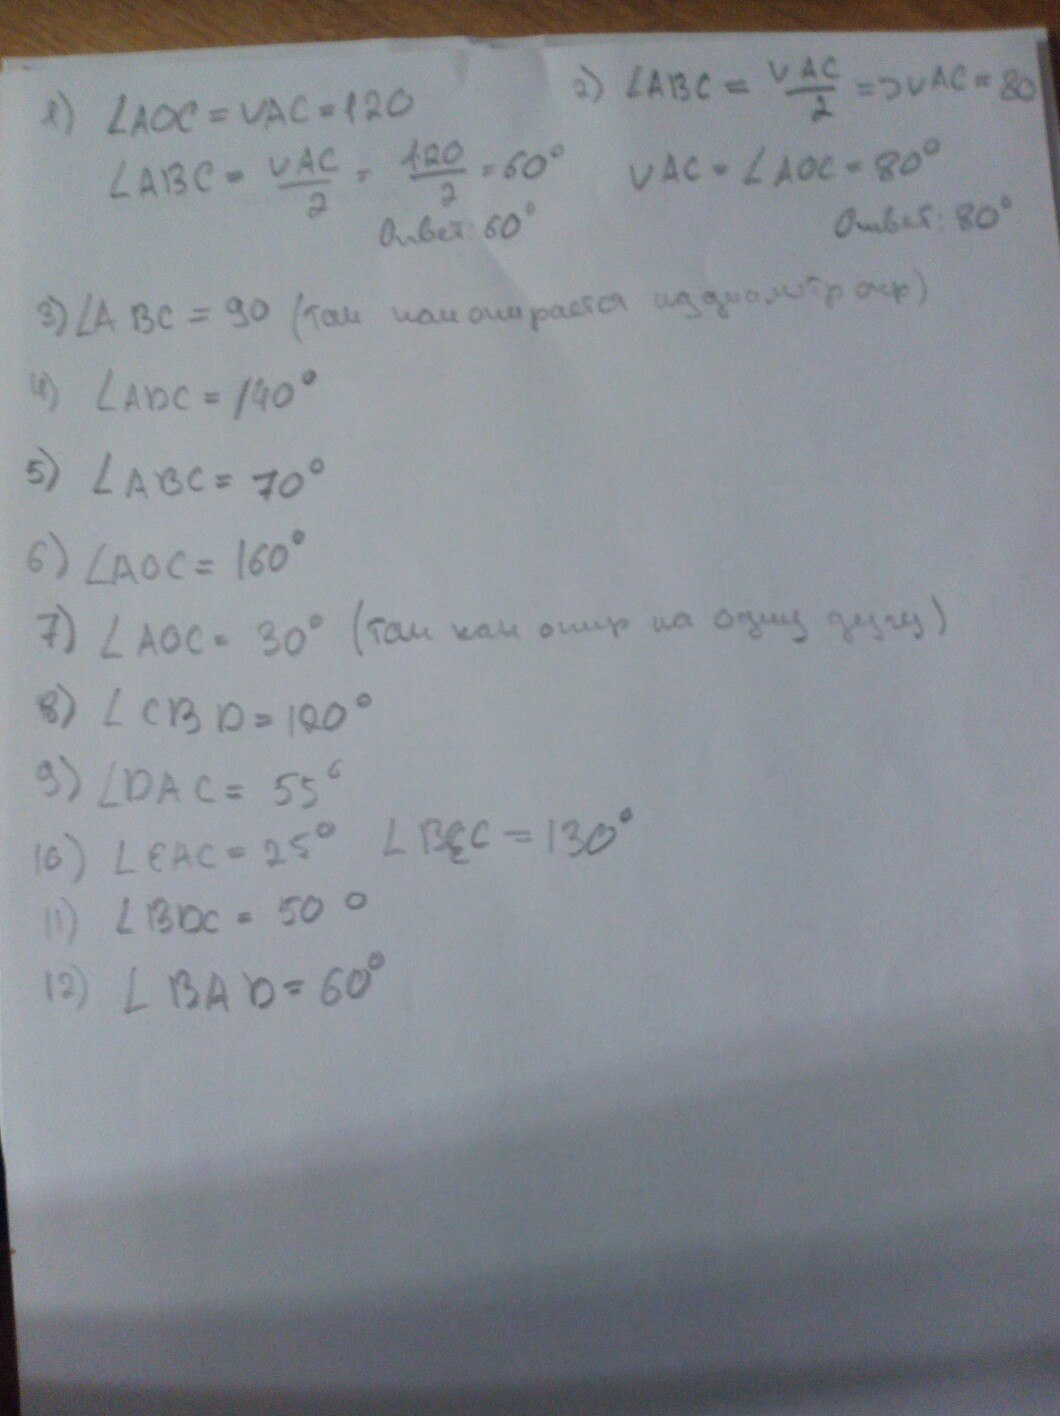 1) ∠AOC = ∪AC = 120
∠ABC = ∪AC/2 = 120/2 = 60°
Ответ: 60°
2) ∠ABC = ∪AC/2 => ∪AC = 80
∪AC = ∠AOC = 80°
Ответ: 80°
3) ∠ABC = 90 (так как опирается
4) ∠ADC = 140°
5) ∠ABC = 70°
6) ∠AOC = 160°
7) ∠AOC = 30° (так как опир на одну дугу)
8) ∠CBD = 120°
9) ∠DAC = 55°
10) ∠EAC = 25° ∠BEC = 130°
11) ∠BDC = 50°
12) ∠BAD = 60°